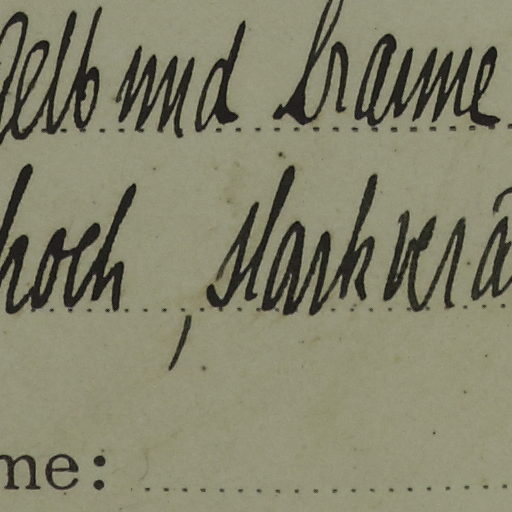 gelb und braune
hoch, stark verä
me: